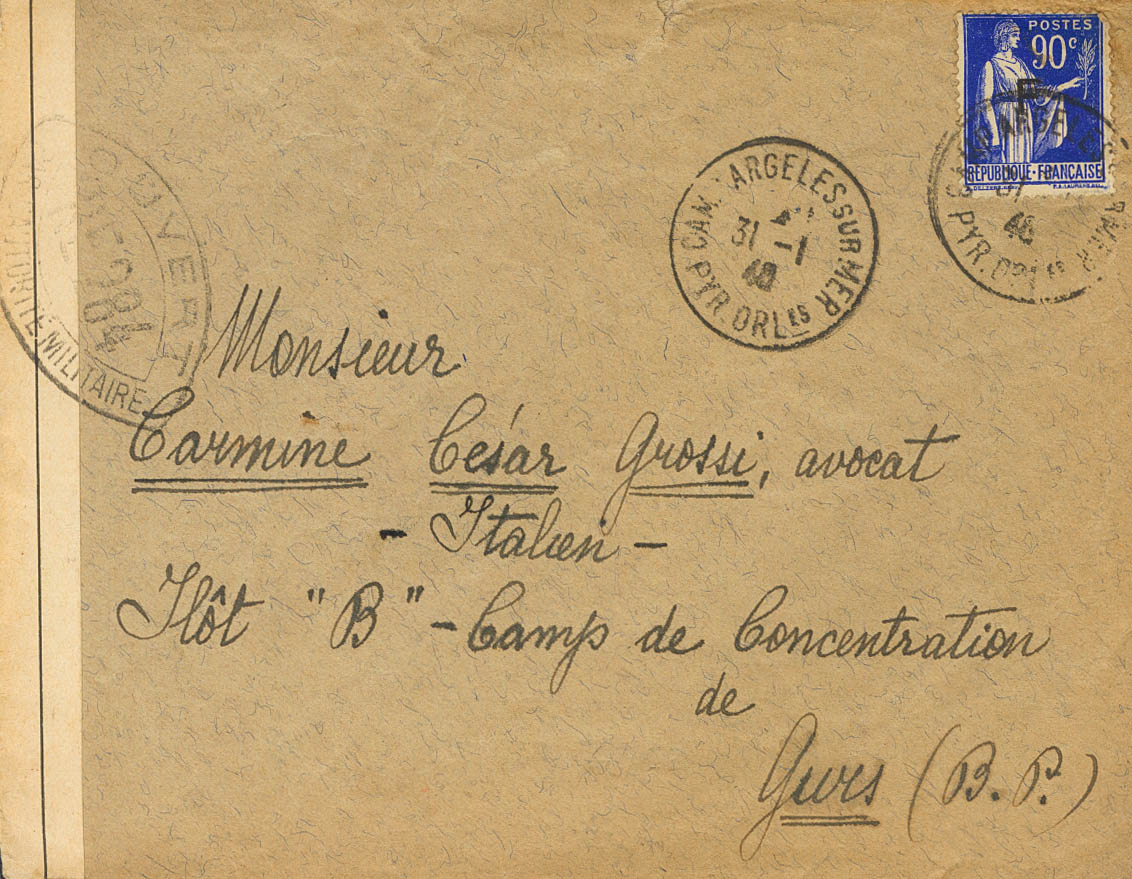 POSTES
90c
F
RÉPUBLIQUE·FRANÇAISE
CAMP ARGELESSURMER
31 -1
40
PYR. ORLES
PYR. ORLES
40
OUVERT
MILITAIRE
Monsieur
Carmine César Grossi, avocat
- Italien -
Ilôt "B" - Camp de Concentration
de
Gurs (B. P.)